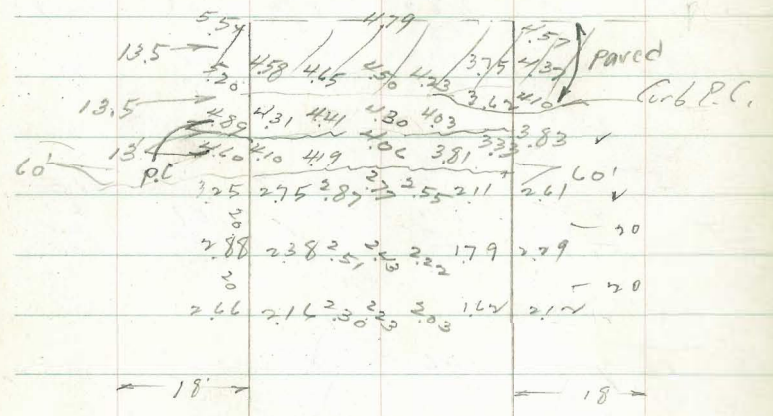 5.54 4.79 4.57
13.5 Paved
5.20 4.58 4.65 4.50 4.23 3.75 4.32
3.62 4.10 Curb P.C.
13.5
4.89 4.31 4.41 4.30 4.03
3.33 3.83
13' 4.60 4.10 4.19 4.06 3.81
60' P.C 60'
3.25 2.75 2.87 2.77 2.55 2.11 2.61
20
20
2.88 2.38 2.51 2.43 2.22 1.79 2.29
20
20
2.66 2.16 2.30 2.23 2.03 1.62 2.12
18' 18